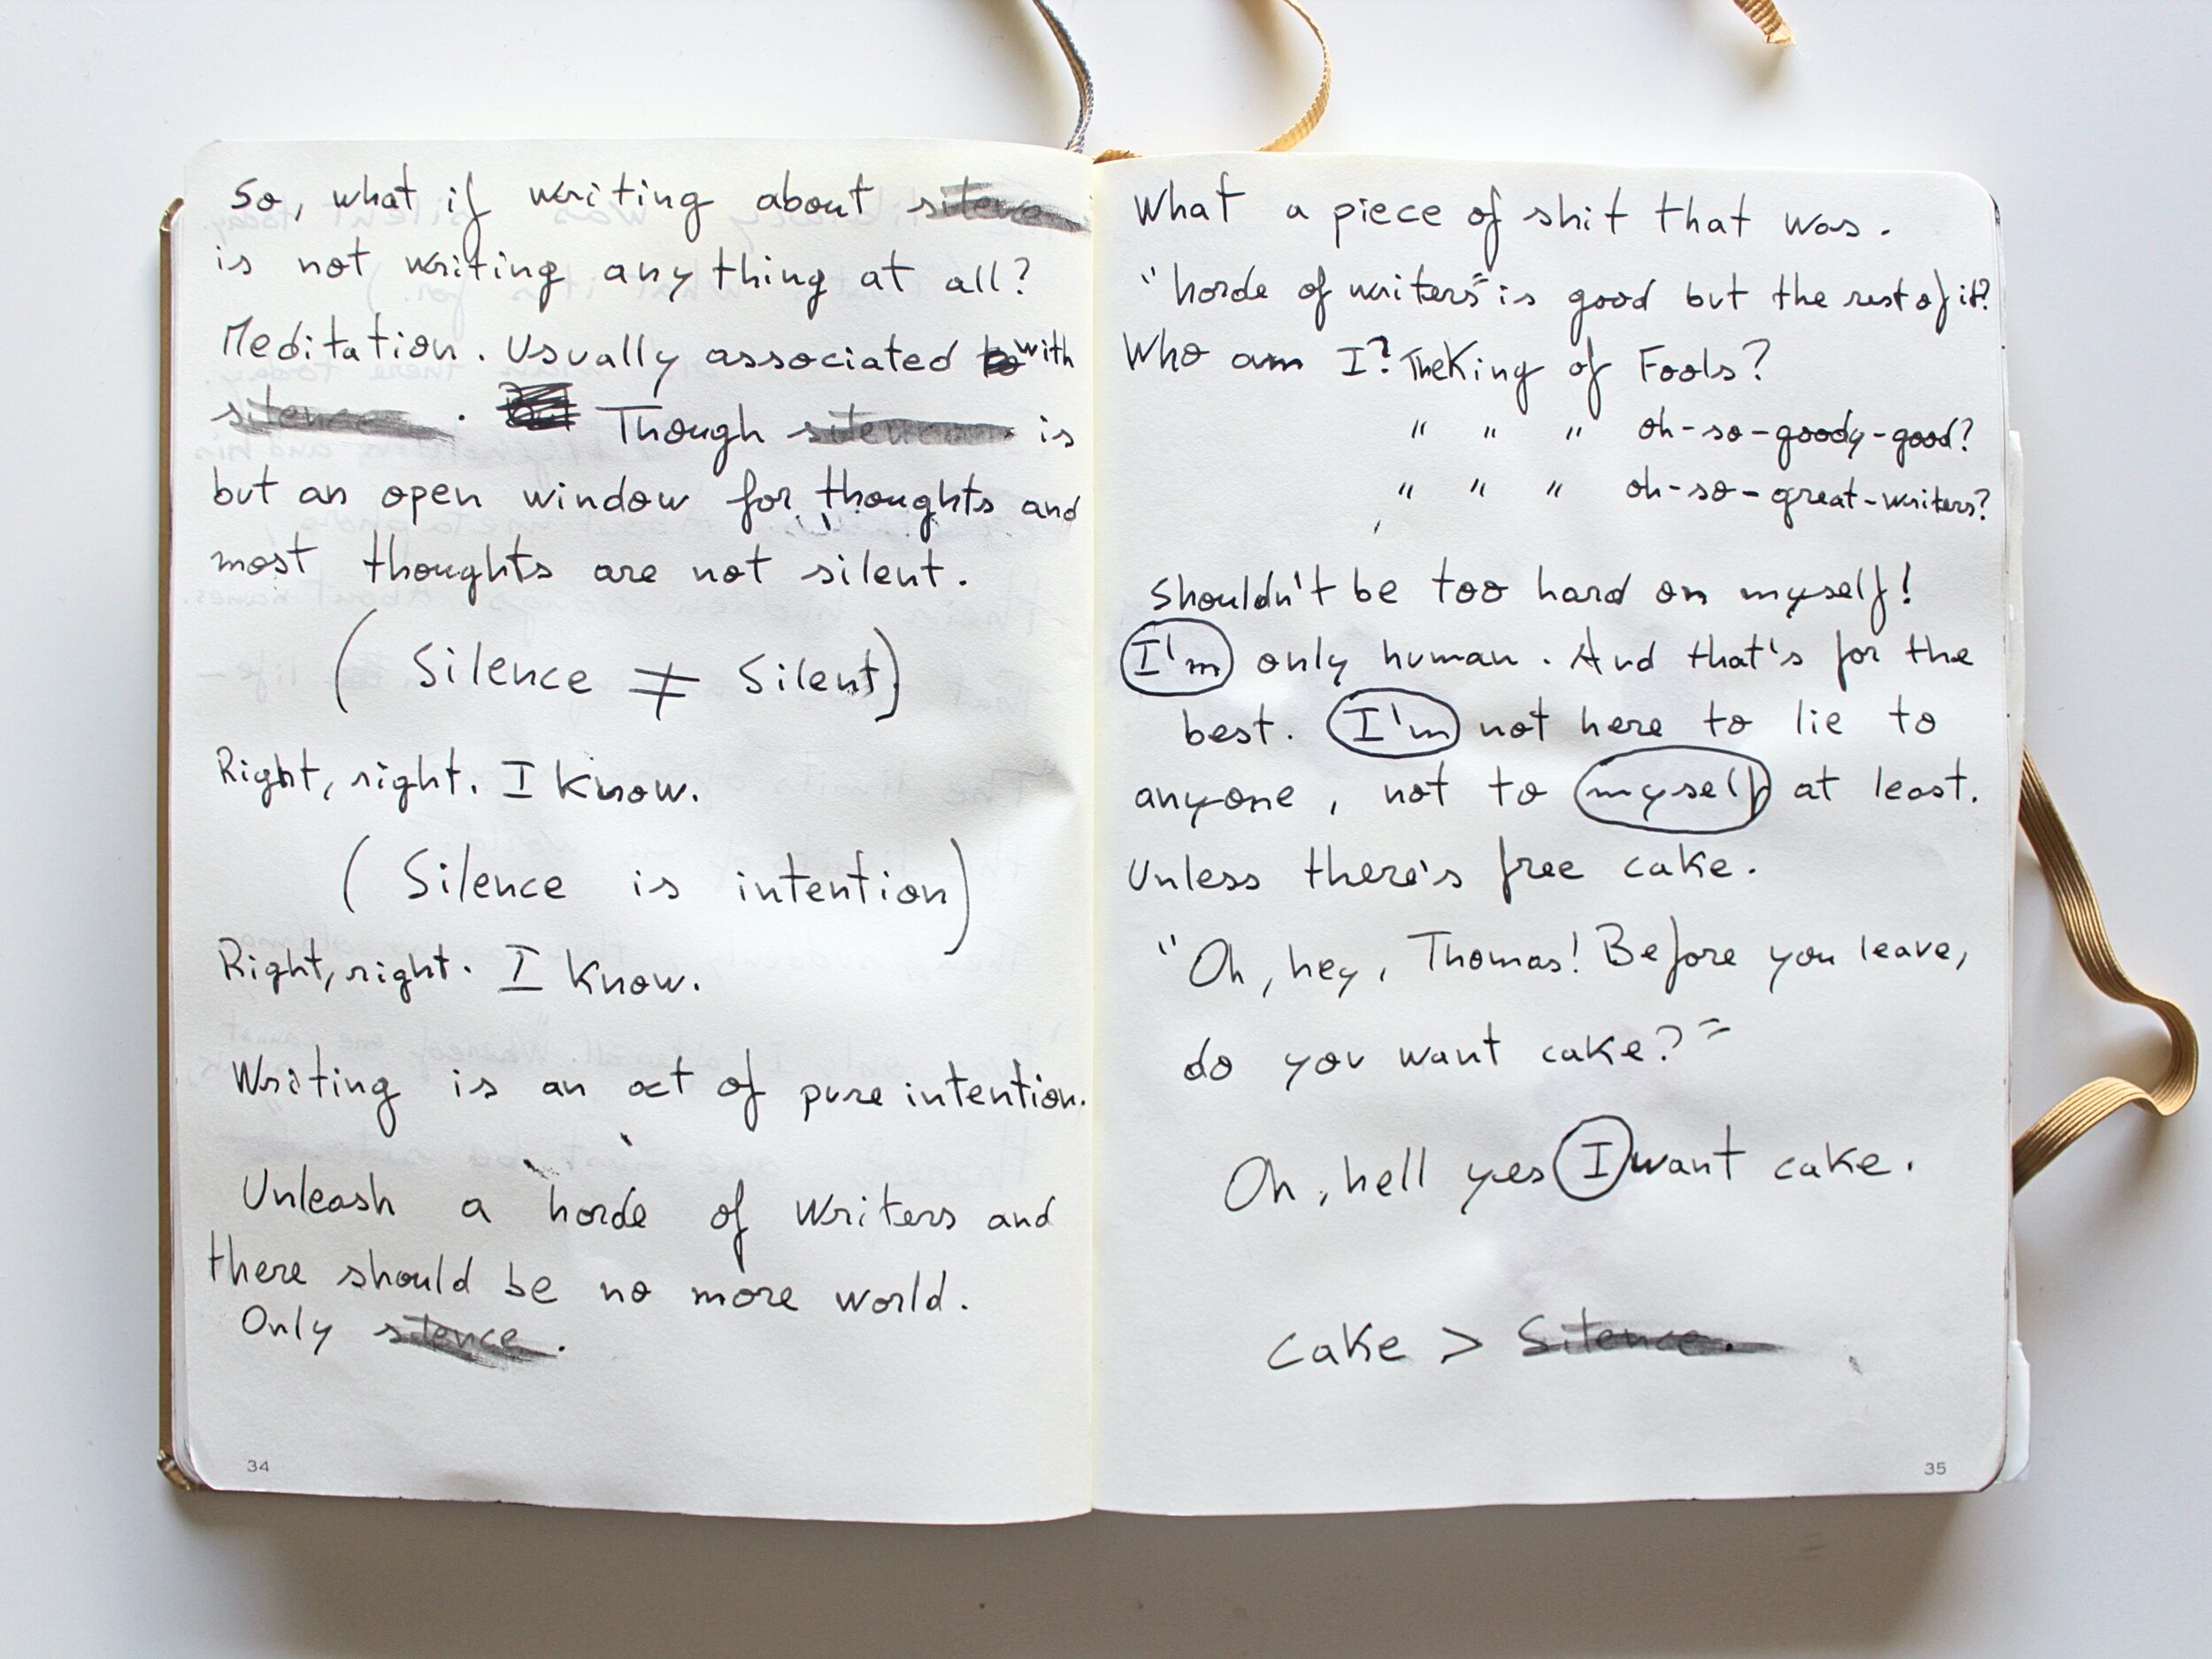 So, what if writing about silence
is not writing anything at all?
Meditation. Usually associated to with
silence. But Though silence is
but an open window for thoughts and
most thoughts are not silent.
( Silence ≠ Silent)
Right, right. I know.
( Silence is intention)
Right, right. I know.
Writing is an act of pure intention.
Unleash a horde of writers and
there should be no more world.
Only silence.
34
What a piece of shit that was.
"horde of writers" is good but the rest of it?
Who am I? The King of Fools?
" " " oh-so-goody-good?
" " " oh-so-great-writers?
Shouldn't be too hard on myself!
I'm only human. And that's for the
best. I'm not here to lie to
anyone, not to myself at least.
Unless there's free cake.
"Oh, hey, Thomas! Before you leave,
do you want cake?"
Oh, hell yes I want cake.
cake > Silence.
35